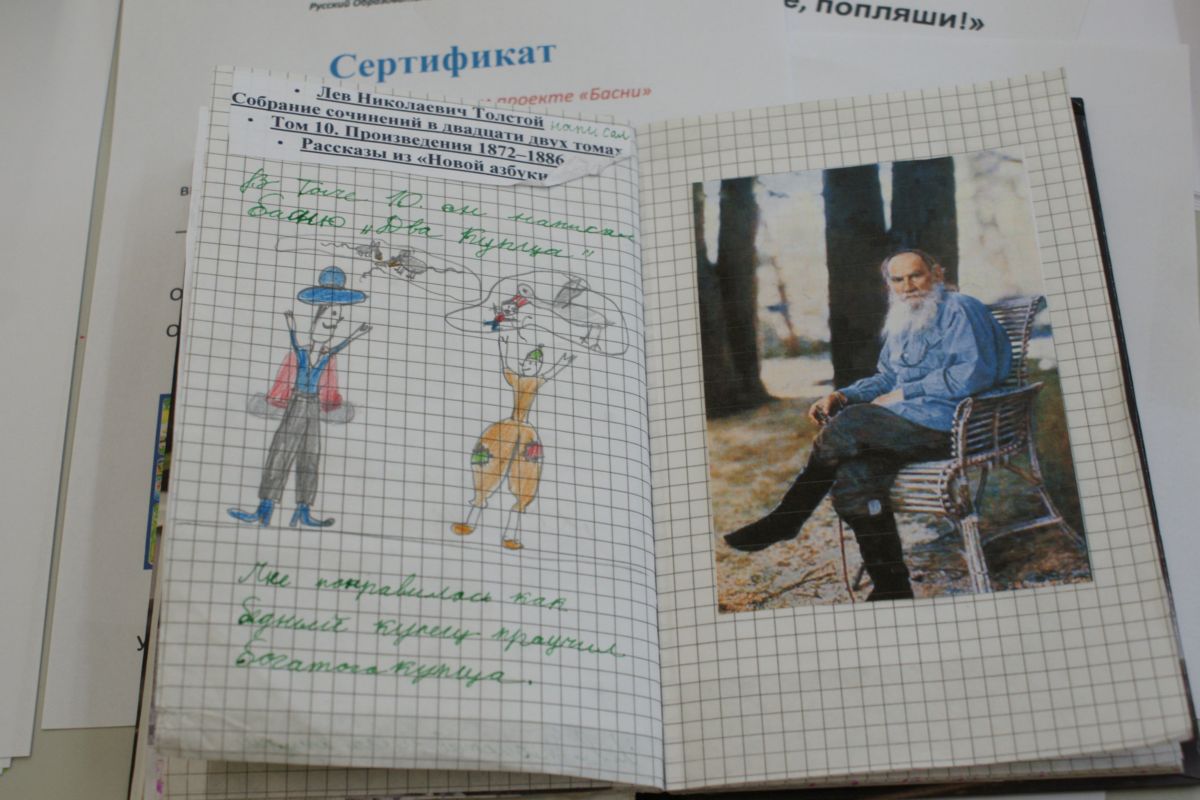 е, попляши!»
Сертификат
проекте «Басни»
• Лев Николаевич Толстой написал
Собрание сочинений в двадцати двух томах
• Том 10. Произведения 1872–1886
• Рассказы из «Новой азбуки
В Томе 10. он написал
басню „Два Купца"
Мне понравилось как
бедный купец проучил
богатого купца.